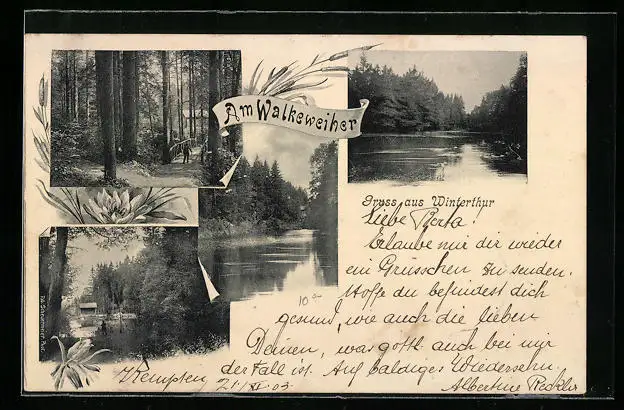 Am Walkeweiher
Gruss aus Winterthur
Liebe Berta!
Erlaube mir dir wieder
ein Grüsschen zu senden.
Hoffe du befindest dich
gesund, wie auch die lieben
Deinen, was gottl. auch bei mir
der Fall ist. Auf baldiges Wiedersehn.
Kempten
21/XI 03
Albertine